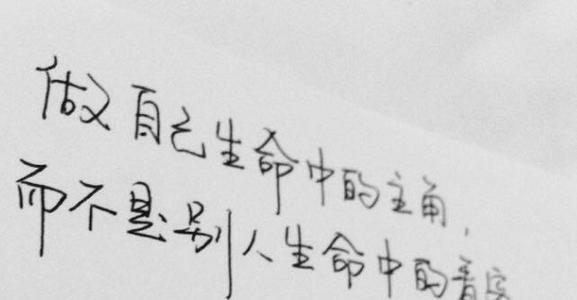 做自己生命中的主角,
而不是别人生命中的看客